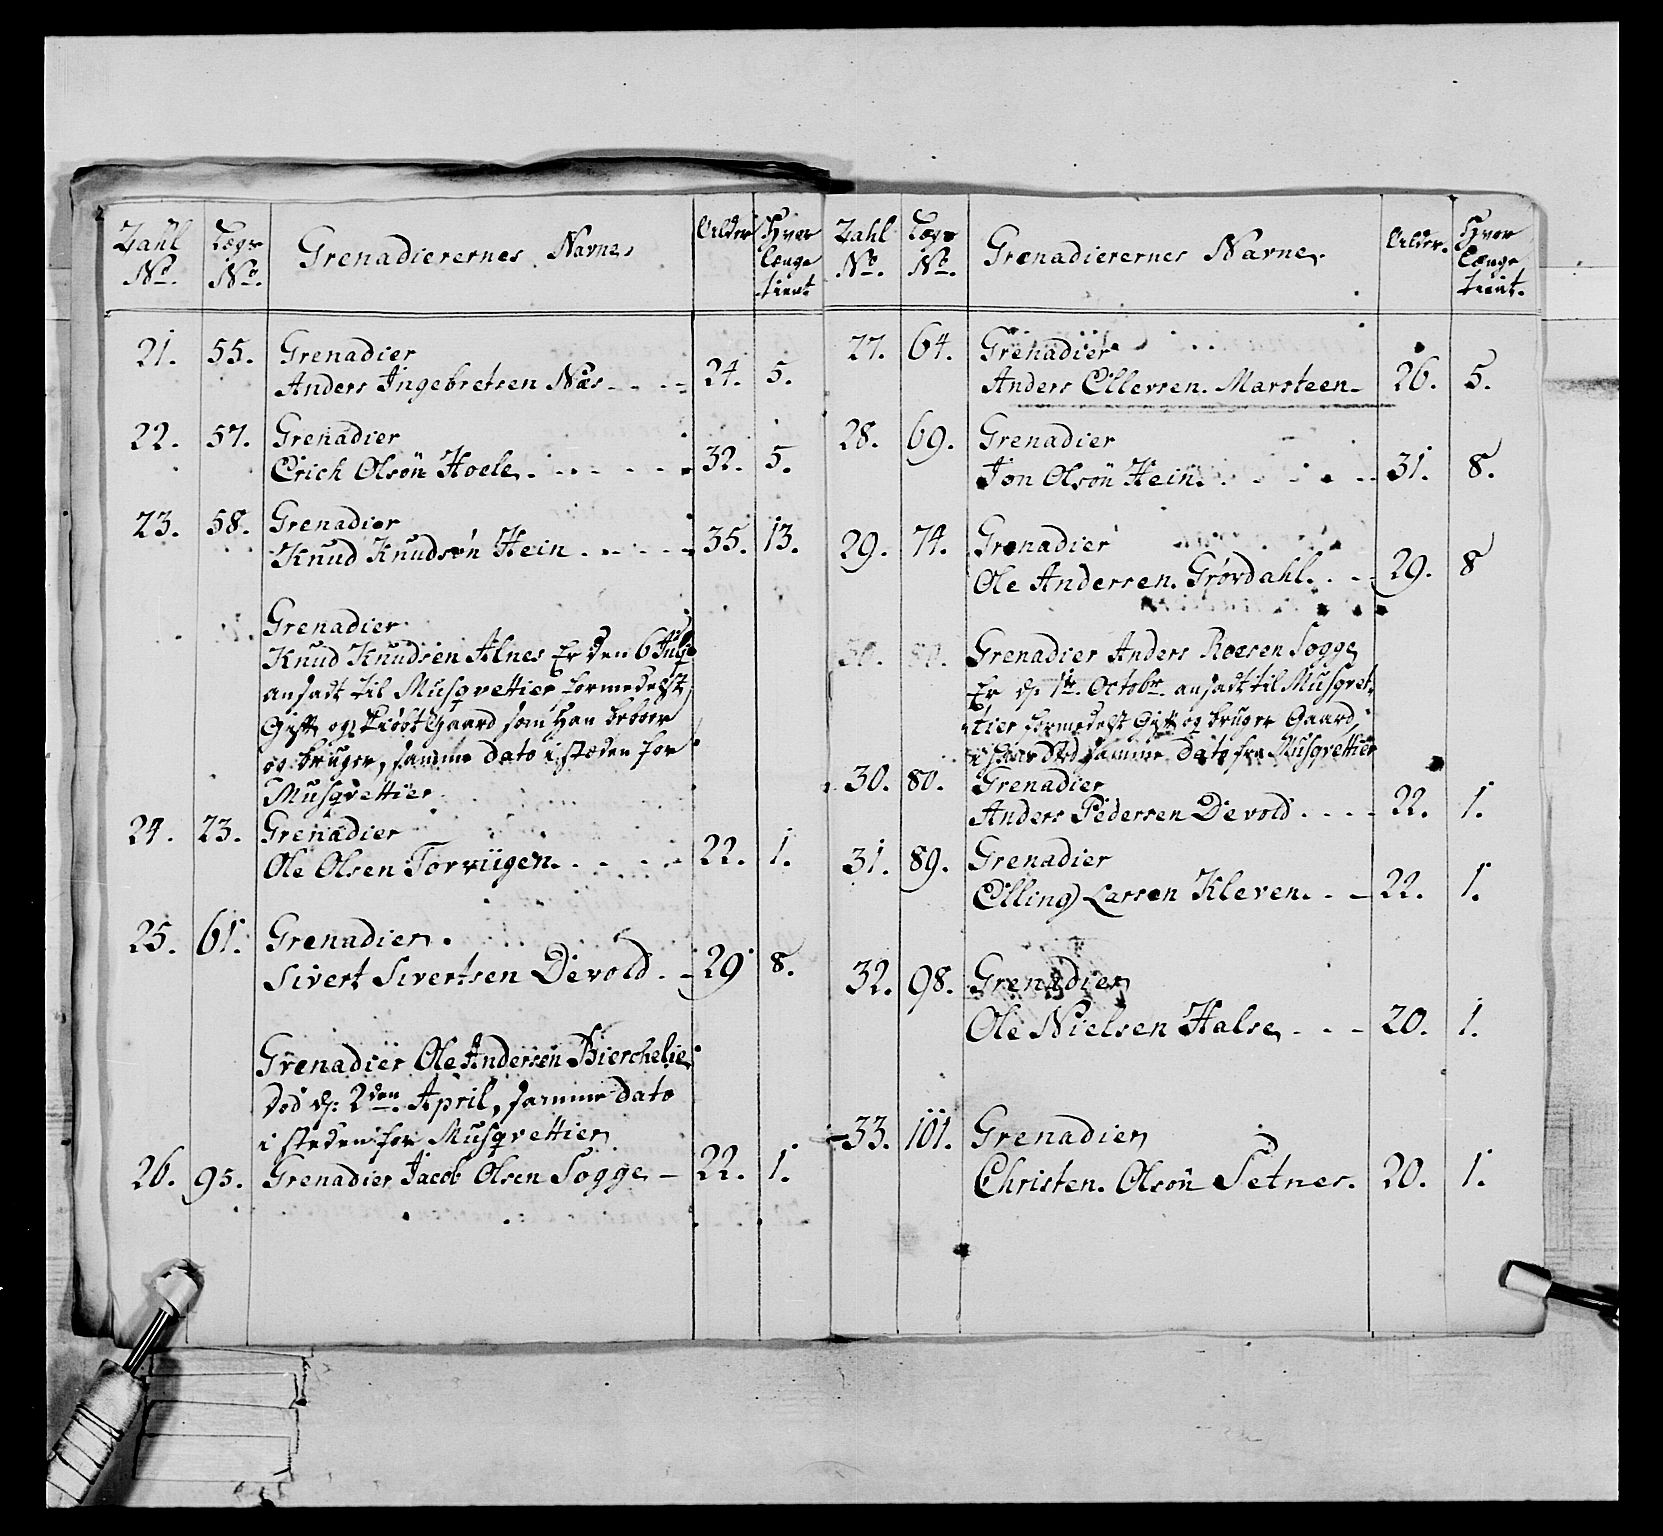 Zahl No. Lægs No. Grenadierernes Navne Alder Hvor længe tient
21. 55. Grenadier
Anders Ingebretsen Næs 24. 5.
22. 57. Grenadier
Erich Olsön Hoele 32. 5.
23. 58. Grenadier
Knud Knudsøn Hein 35. 13.
Grenadier
Knud Knudsen Alnes Er den 6 July
ansadt til Musqvettier formedelst
Gift og Kiöbt Gaard som Han beboer
og bruger, samme dato i steden for
Musqvettier
24. 23. Grenadier
Ole Olsen Torviigen 22. 1.
25. 61. Grenadier
Sivert Sivertsen Devold 29 8.
Grenadier Ole Andersen Bierchelie
død d. 2den April, samme dato
i steden for Musqvettier
26. 95. Grenadier Jacob Olsen Sogge 22. 1.
Zahl No. Lægs No. Grenadierernes Navne Alder. Hvor Længe tient.
27. 64. Grenadier
Anders Ellevsen Marsteen 26. 5.
28. 69. Grenadier
Jon Olsön Hein 31. 8.
29. 74. Grenadier
Ole Andersen Grøvdahl 29. 8
30. 80. Grenadier Anders Roesen Sogge
Er d. 1te Octobr. ansadt til Musqvet-
tier formedelst Gift og bruger Gaard,
samme Dato fra Musqvettier
30. 80. Grenadier
Anders Pedersen Devold 22. 1.
31. 89. Grenadier
Elling Larsen Kleven 22. 1.
32. 98. Grenadier
Ole Nielsen Halse 20. 1.
33. 101. Grenadier
Christen Olsön Setnes. 20. 1.